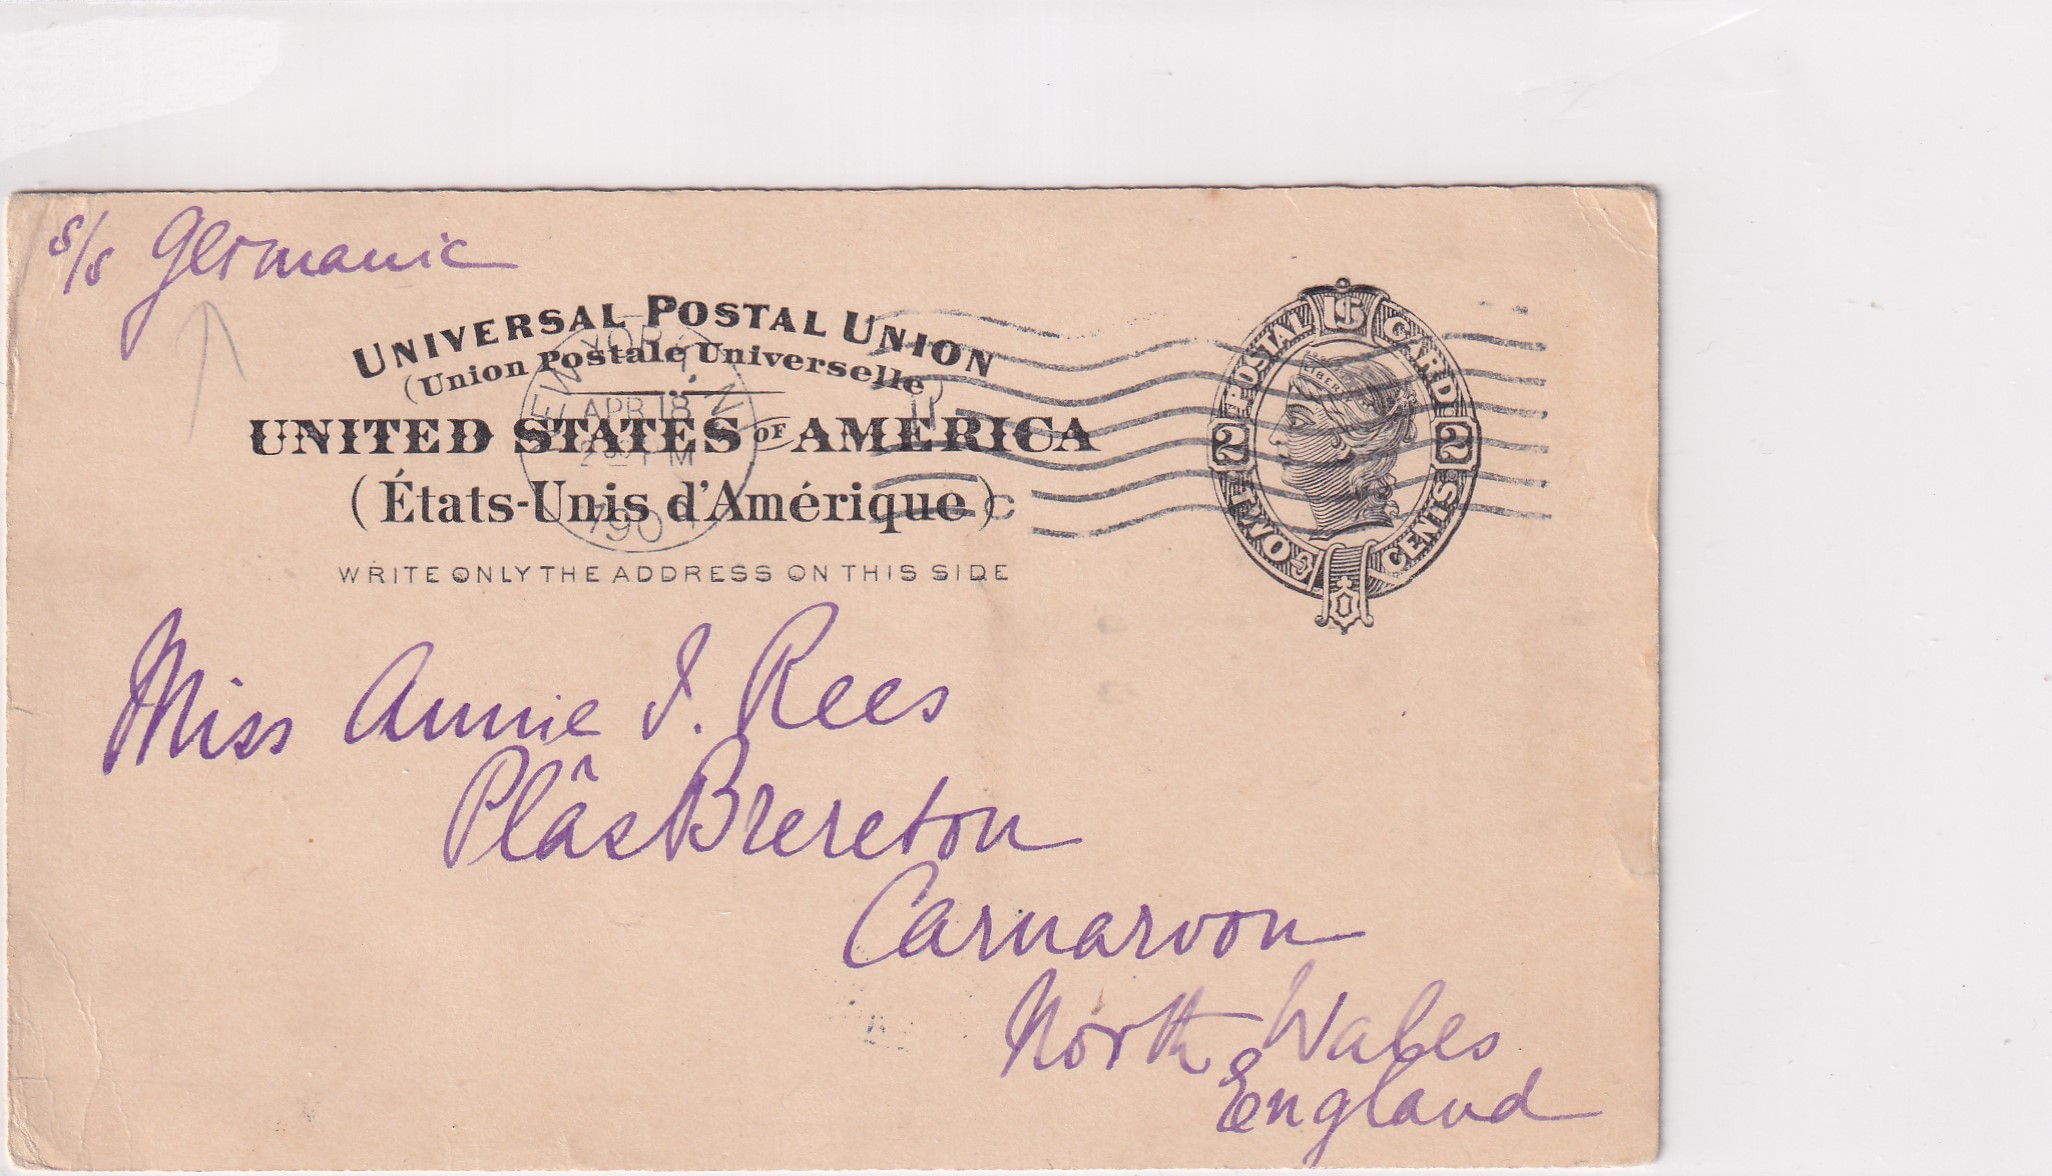 s/s Germanic
UNIVERSAL POSTAL UNION
(Union Postale Universelle)
UNITED STATES OF AMERICA
(États-Unis d'Amérique)
WRITE ONLY THE ADDRESS ON THIS SIDE
NEW YORK, N
APR 18
PM
190
C
POSTAL US CARD
LIBER
2 2
TWO CENTS
Miss Annie I. Rees
Plâs Brereton
Carnarvon
North Wales
England